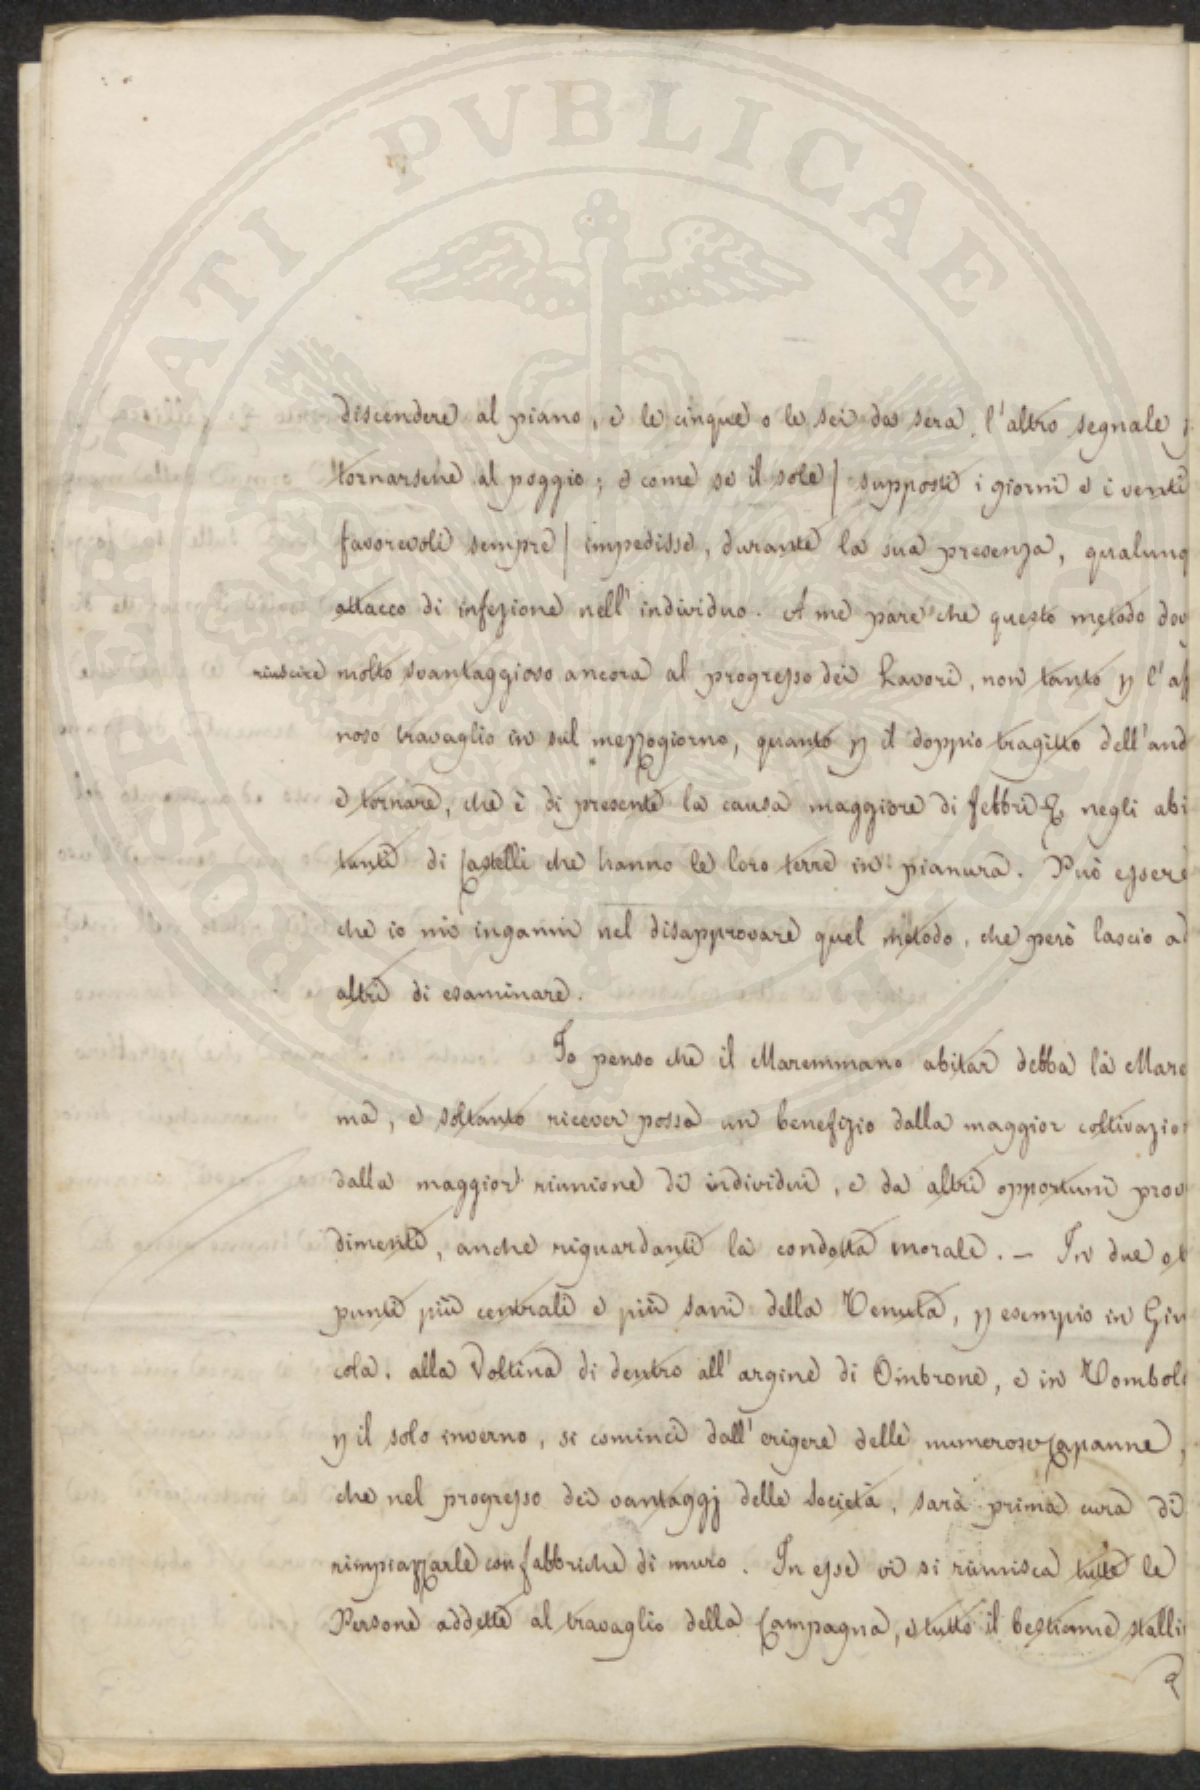 PROSPERITATI PVBLICAE
discendere al piano, e le cinque o le sei da sera, l'altro segnale p
tornarsene al poggio; e come se il sole / supposti i giorni e i venti
favorevoli sempre / impedisse, durante la sua presenza, qualunq
attacco di infezione nell'individuo. A me pare che questo metodo dov
riuscire molto svantaggioso ancora al progresso dei Lavori, non tanto p l'aff
noso travaglio in sul mezzogiorno, quanto p il doppio tragitto dell'and
e tornare, che è di presente la causa maggiore di febbri negli abi
tanti di Castelli che hanno le loro terre in pianura. Può essere
che io mi inganni nel disapprovare quel metodo, che però lascio ad
altri di esaminare.
Io penso che il Maremmano abitar debba la Mare
ma, e soltanto ricever possa un benefizio dalla maggior coltivazion
dalla maggior riunione di individui, e da altri opportuni prov
dimenti, anche riguardanti la condotta morale. – In due o t
punti più centrali e più sani della Tenuta, p esempio in Giun
cola, alla Voltina di dentro all'argine di Ombrone, e in Tombolo
p il solo inverno, si cominci dall'erigere delle numerose Capanne,
che nel progresso dei vantaggj della Società, sarà prima cura di
rimpiazzarle con fabbriche di muro. In esse vi si riunisca tutte le
Persone addette al travaglio della Campagna, e tutto il bestiame stalli